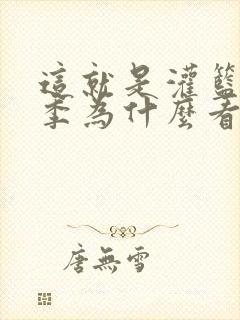 這就是灌籃
季為什麼看
唐無雪